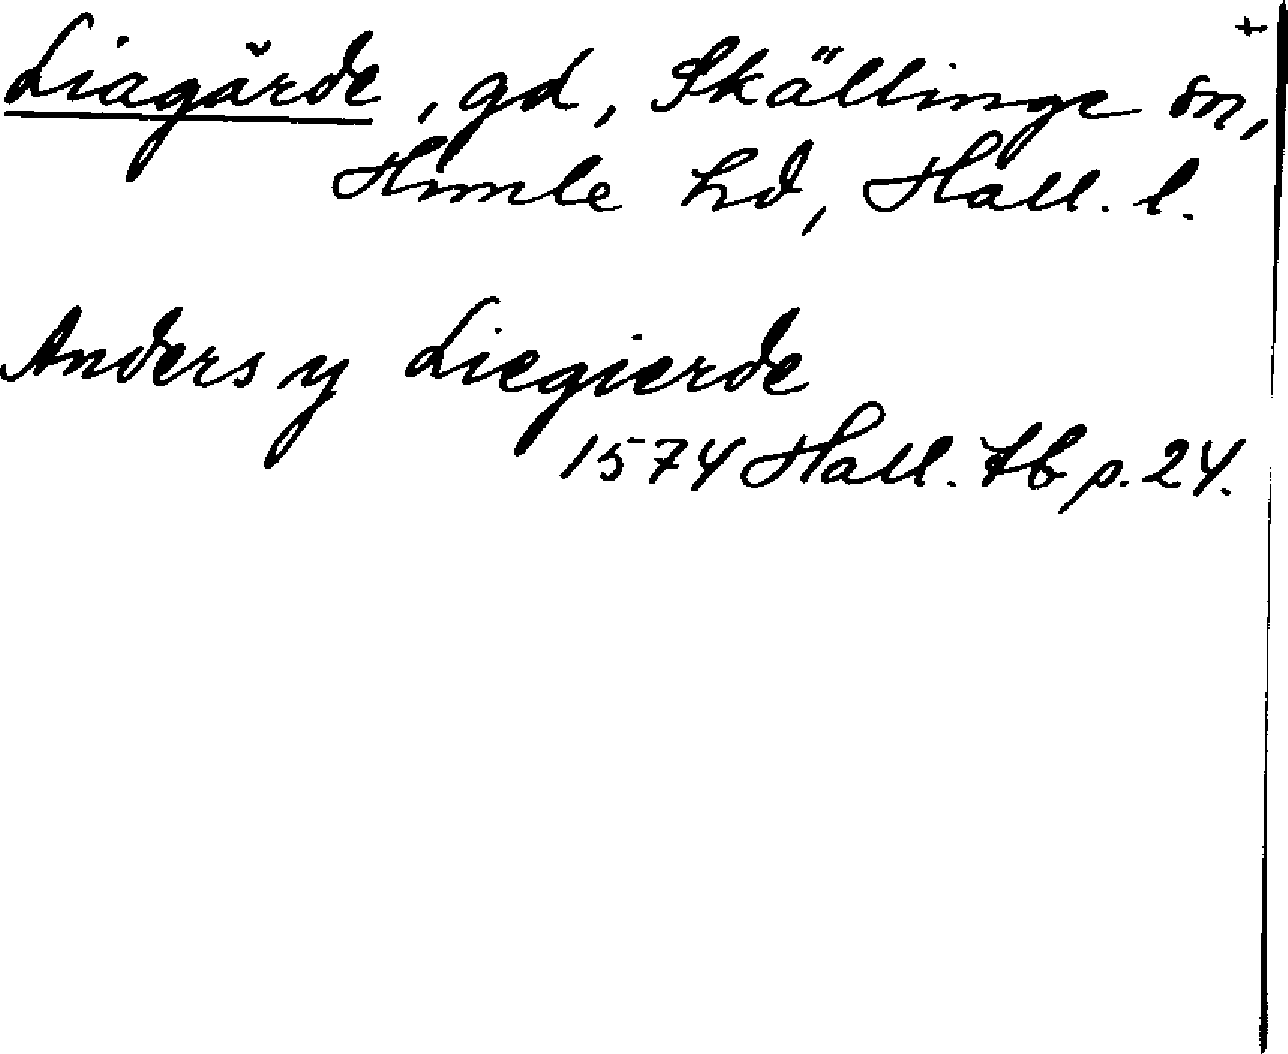 Liagärde, gd, Skällinge sn,
Himle hd, Hall. l.
Anders y Liegierde
1574 Hall. tb p. 24.